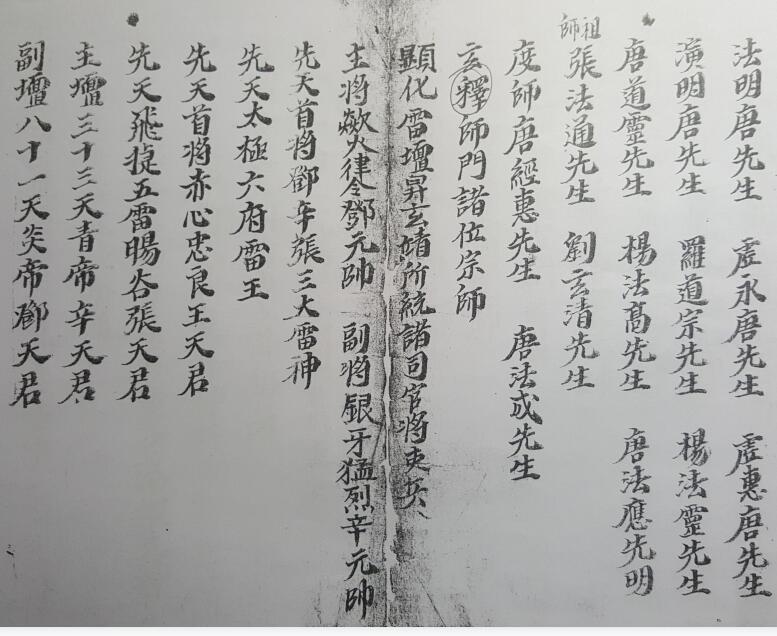 法明唐先生 虛永唐先生 虛惠唐先生
演明唐先生 羅道宗先生 楊法靈先生
唐道靈先生 楊法高先生 唐法應先明
祖師張法通先生 劉玄清先生
度師唐經惠先生 唐法成先生
玄釋師門諸位宗師
顯化雷壇昇玄靖所統諸司官將吏兵
主將歘火律令鄧元帥 副將銀牙猛烈辛元帥
先天首將鄧辛張三大雷神
先天太極六府雷王
先天首將赤心忠良王天君
先天飛捷五雷暘谷張天君
主壇三十三天青帝辛天君
副壇八十一天炎帝鄧天君